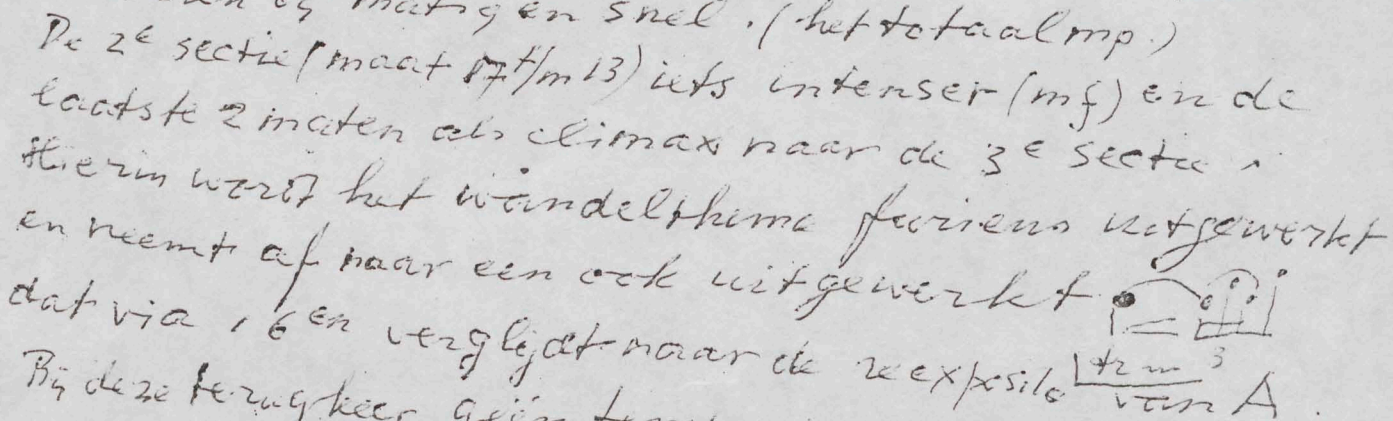 matig en snel. (het totaal mp.)
De 2e sectie (maat 17 t/m 23) iets intenser (mf) en de
laatste 2 maten als climax naar de 3e sectie.
Hierin wordt het wandelthema furieus uitgewerkt
en neemt af naar een ook uitgewerkt
dat via 16en verglijdt naar de reexpositie van A.
Bij deze terugkeer geen